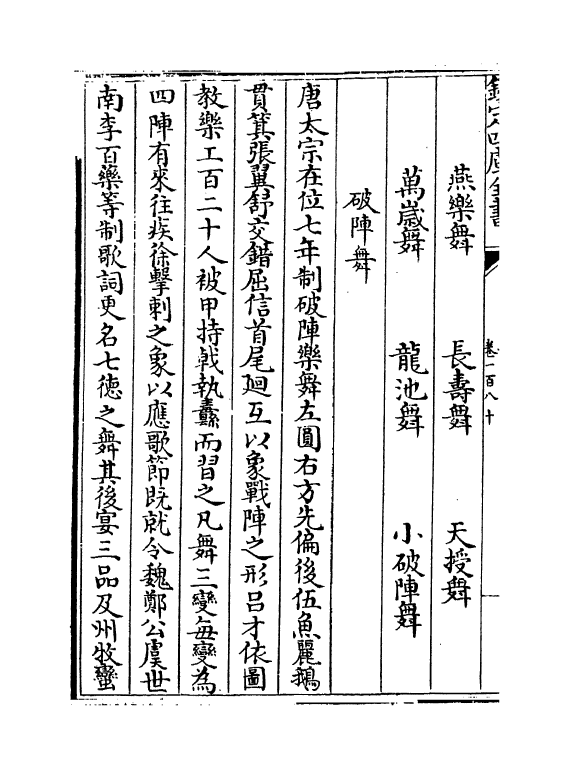 欽定四庫全書
卷一百八十
燕樂舞　長壽舞　天授舞
萬歲舞　龍池舞　小破陣舞
破陣舞
唐太宗在位七年制破陣樂舞左圓右方先偏後伍魚麗鵝
貫箕張翼舒交錯屈信首尾廻互以象戰陣之形呂才依圖
教樂工百二十人被甲持戟執纛而習之凡舞三變每變為
四陣有來往疾徐擊刺之象以應歌節既就令魏鄭公虞世
南李百藥等制歌詞更名七徳之舞其後宴三品及州牧蠻